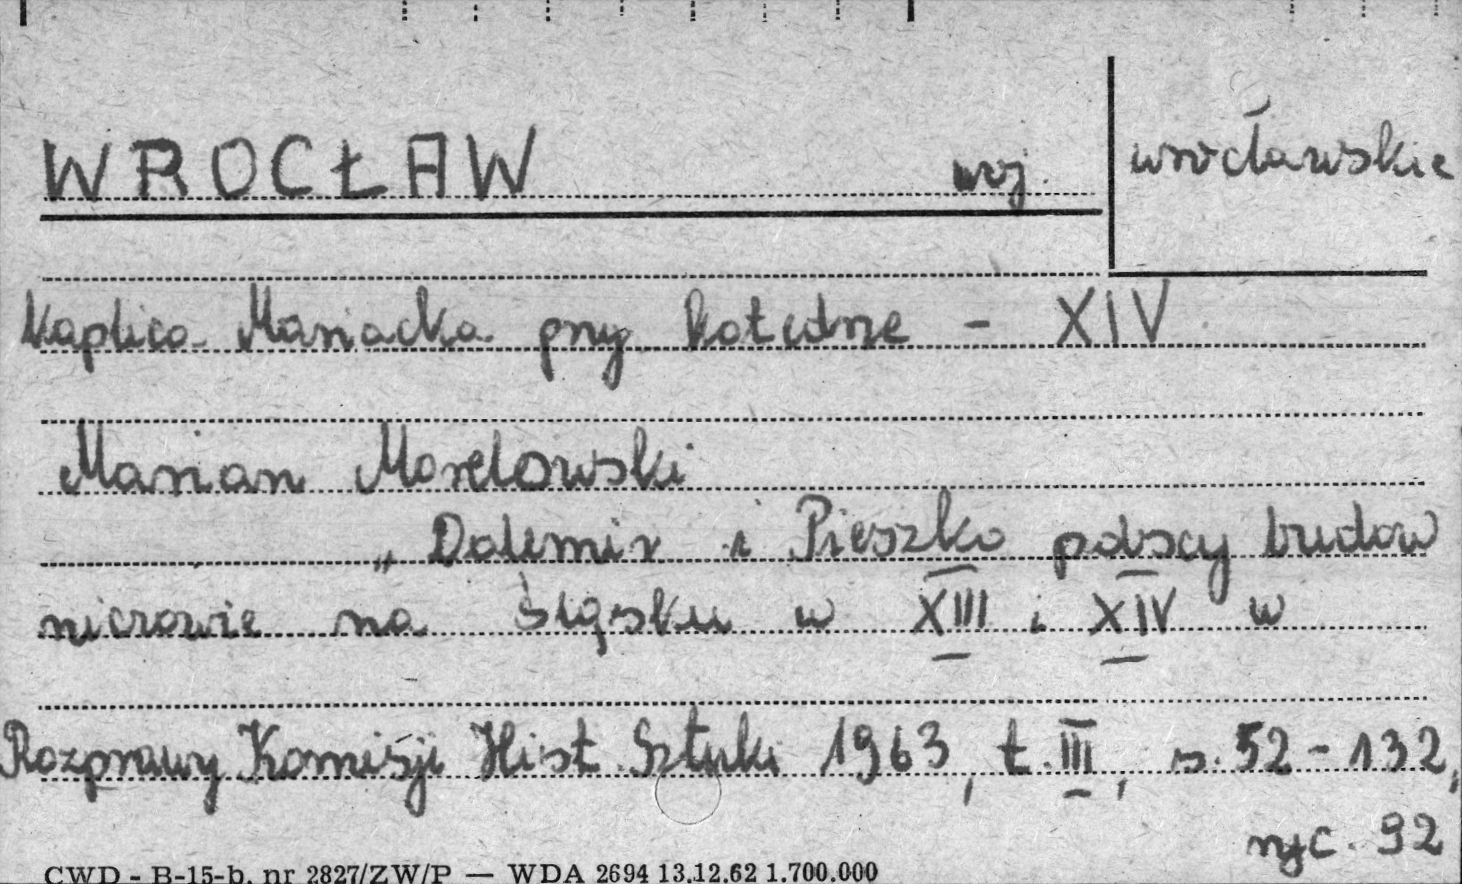 WROCŁAW woj. wrocławskie
Kaplica Mariacka przy Katedrze - XIV
Marian Morelowski
„Dalemir i Pieszko polscy budow
niczowie na Śląsku w XIII i XIV w
Rozprawy Komisji Hist. Sztuki 1963, t. III, s. 52-132,
ryc. 92
CWD - B-15-b. nr 2827/ZW/P — WDA 2694 13.12.62 1.700.000